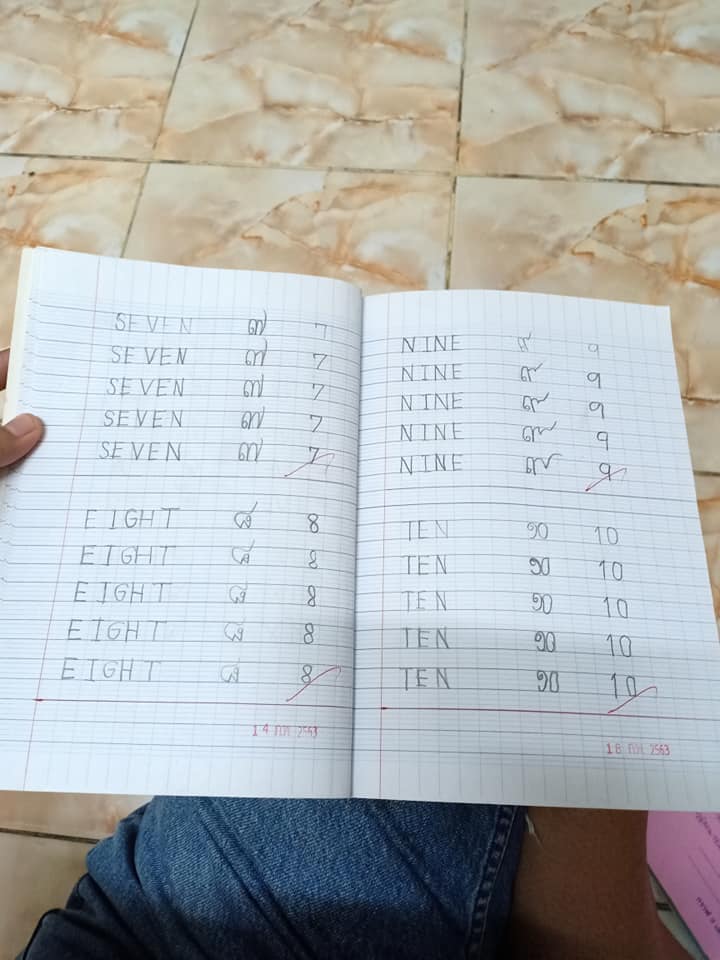 SEVEN ๗ 7
SEVEN ๗ 7
SEVEN ๗ 7
SEVEN ๗ 7
SEVEN ๗ 7
EIGHT ๘ 8
EIGHT ๘ 8
EIGHT ๘ 8
EIGHT ๘ 8
EIGHT ๘ 8
14 ก.พ. 2563
NINE ๙ 9
NINE ๙ 9
NINE ๙ 9
NINE ๙ 9
NINE ๙ 9
TEN ๑๐ 10
TEN ๑๐ 10
TEN ๑๐ 10
TEN ๑๐ 10
TEN ๑๐ 10
18 ก.พ. 2563